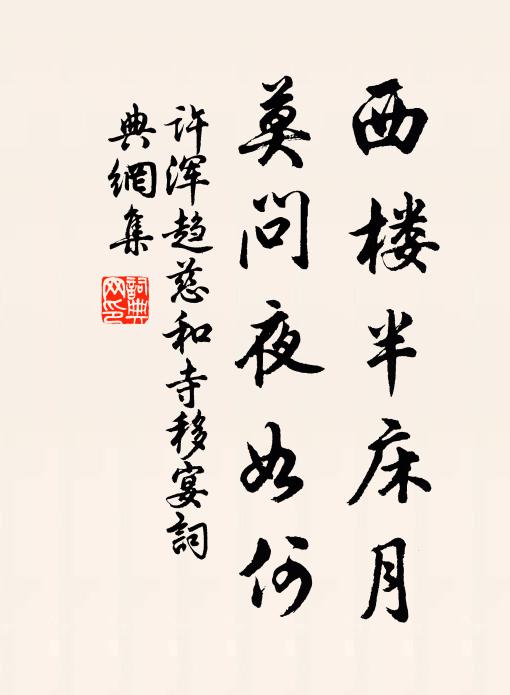 西楼半床月
莫问夜如何
许浑趋慈和寺移宴詞
典網集
詞典网印